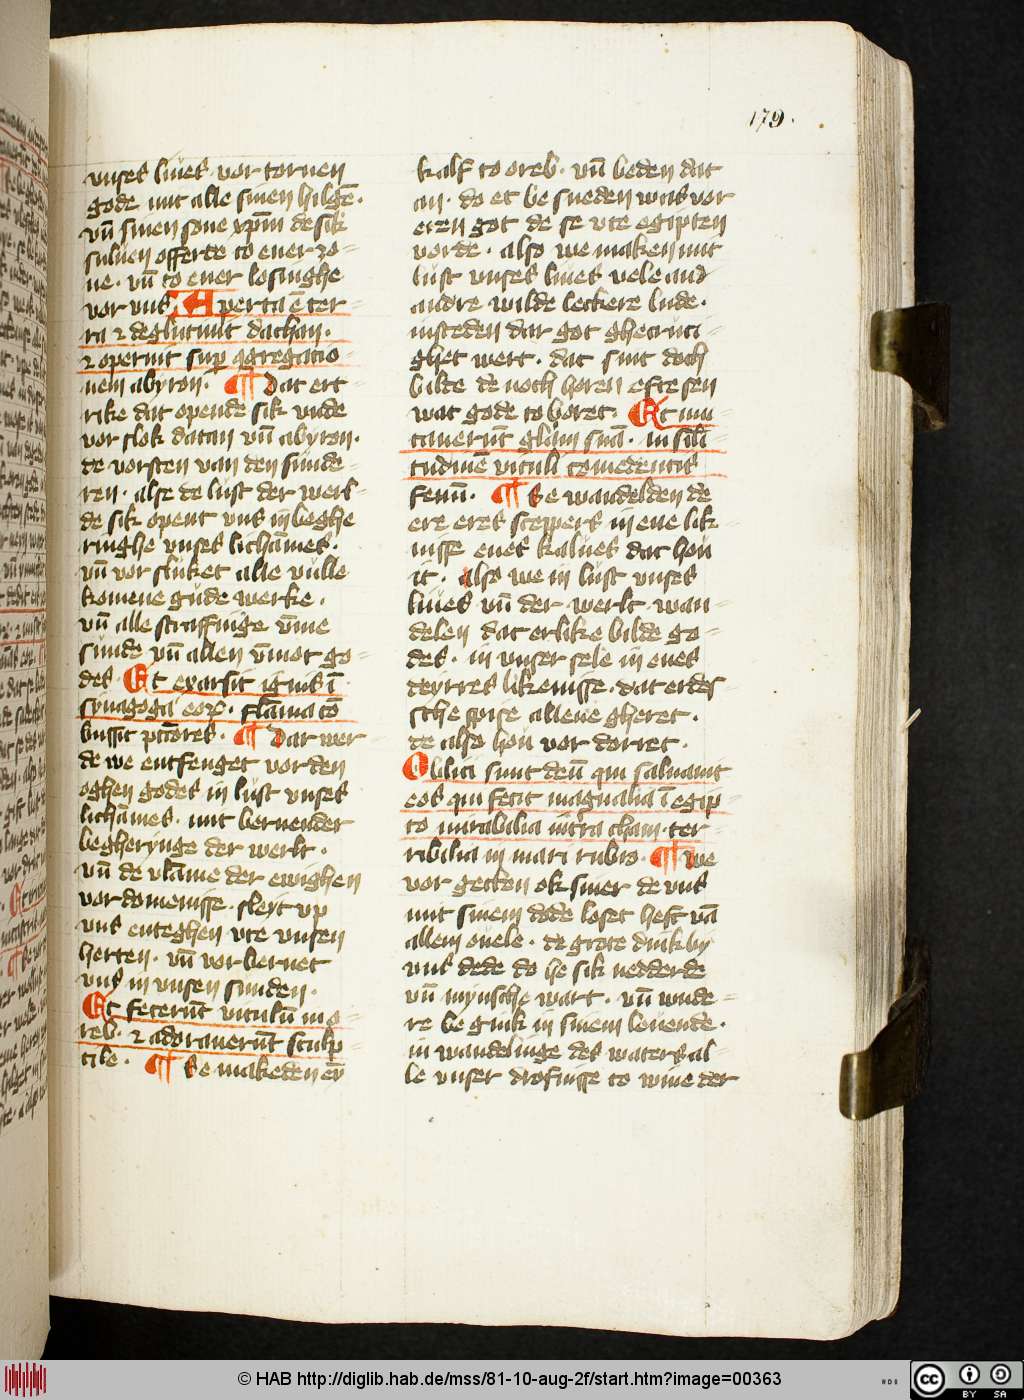 179.
vnses liues vor tornen
gode mit alle sinen hilgē.
vn̄ sinen sone xp̄m de sik
suluen offerde to ener zo=
ne. vn̄ to ener losinghe
vor vns Aperta ē ter=
ra ⁊ deglutiuit dathan.
⁊ operuit sup̱ ꝯgregatio=
nem abyron. ¶ Dat ert=
rike dat opende sik vnde
vor slok datan vn̄ abyron.
de vorsten van den sunde=
ren. alse de lust der werl=
de sik opent vns in beghe
ringhe vnses lichāmes.
vn̄ vor sluket alle vulle
komene gude werke.
vn̄ alle straffinge vm̄e
sunde vn̄ allen vm̄ot go=
des. Et exarsit ignis ī
synagoga eoꝝ. flāma cō
bussit pctōres. ¶ Dar wer
de we entfenget vor den
oghen godes in lust vnses
lichāmes. mit bernender
begheringe der werlt.
vn̄ de vlāme der ewighen
vordomenisse. sleyt vp
vns enteghen vte vnsen
herten. vn̄ vorbernet
vns in vnsen sunden.
Et fecerūt vitulū in o=
reb. ⁊ adorauerūt sculp=
tile. ¶ Se makeden eȳ
kalf to oreb. vn̄ beden dat
an. do et be sneden was vor
eren got de se vte egipten
vorde. also we maken mit
lust vnses liues vele and
andre wilde leckere lude.
in steden dar got ghecruci=
ghet wert. dat sint doch
bilde de noch horen efte sen
wat gode to horet. Et mu=
tauerūt gl̄am suā. in sīli=
tudinē vituli comedentis
fenū. ¶ Se wandelden de
ere eres sceppers in ene lik=
nisse enes kalues dat hou
it. also we in lust vnses
liues vn̄ der werlt wan=
delen dat erlike bilde go=
des. in vnser sele in enes
deyrtes likenisse. dat erdes=
sche spise allene gheret.
de also hou vor dorret.
Obliti sunt deū qui saluauit
eos qui fecit magnalia ī egip=
to mirabilia in tra cham. ter=
ribilia in mari rubro. ¶ We
vor getten ok siner de vns
mit sinem dode loset heft vā
allem ouele. de grote dink by
vns dede do he sik nedderde
vn̄ mynsche wart. vn̄ wnde=
re be gink in sinem leuende.
in wandelinge des waters al=
le vnser drofnisse to wine der
© HAB http://diglib.hab.de/mss/81-10-aug-2f/start.htm?image=00363
HAB
cc
BY SA